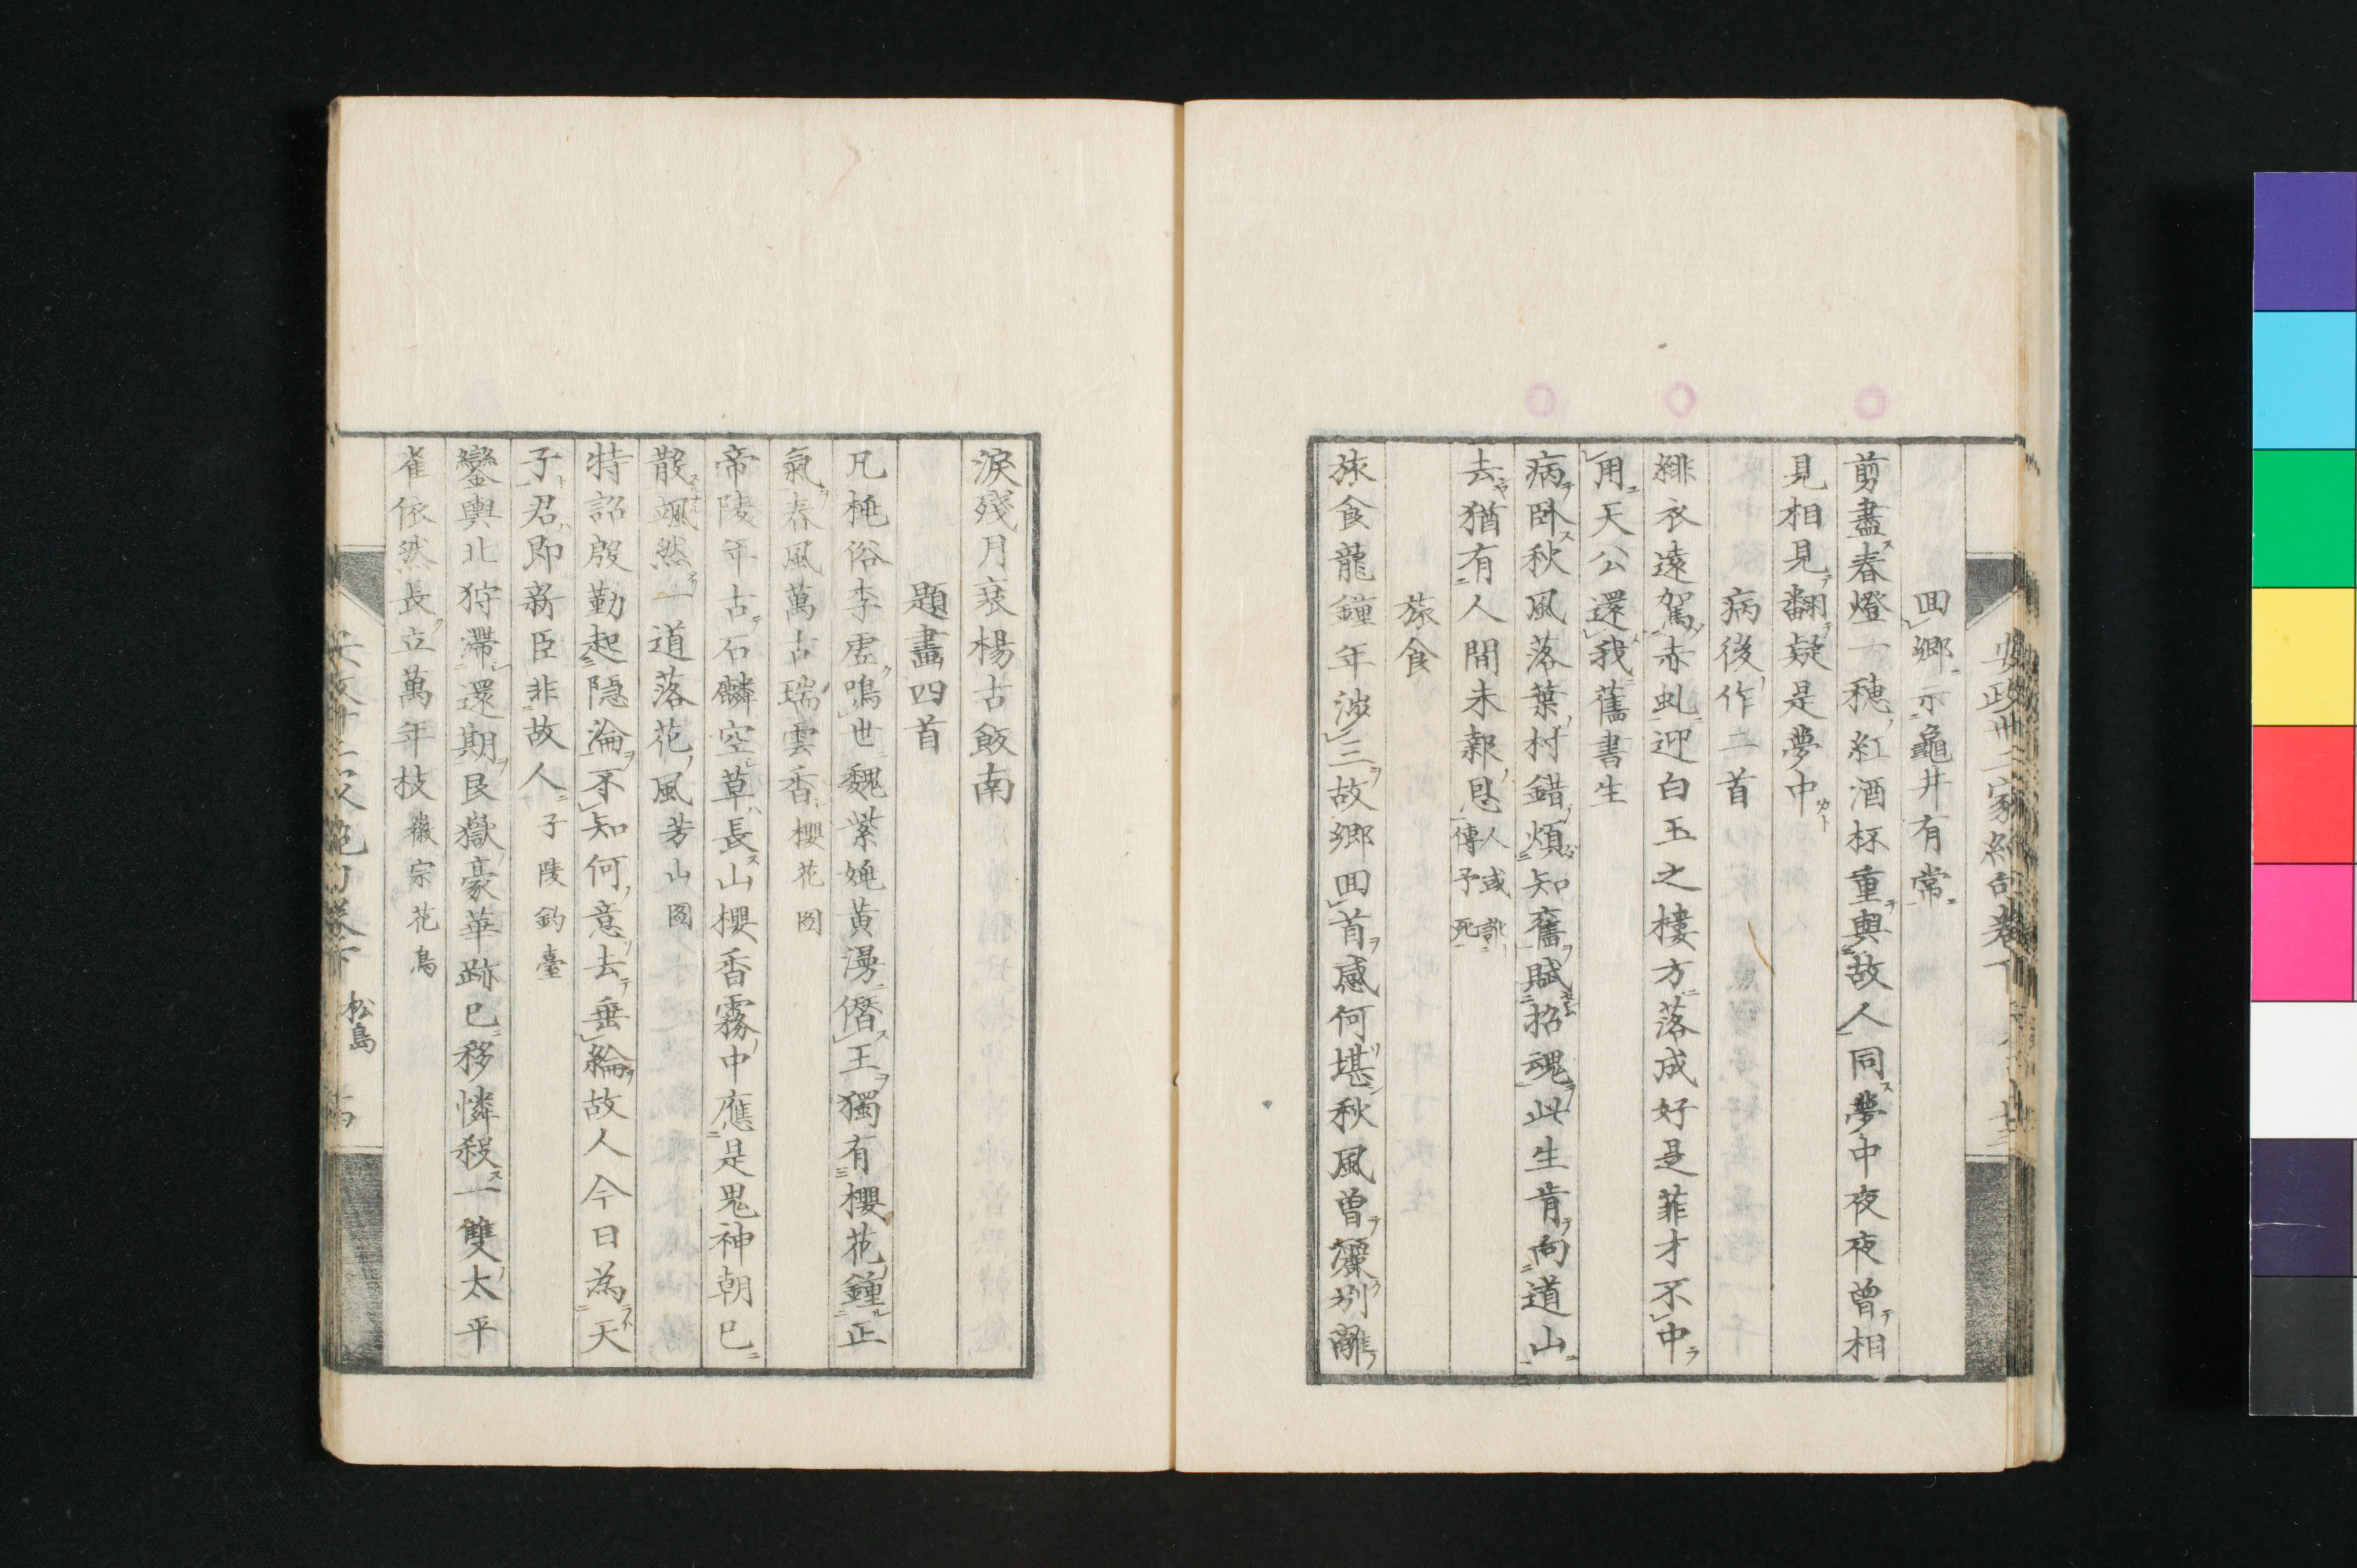 回郷示龜井有常
剪盡春燈一穗紅酒杯重與故人同夢中夜夜曾相
見相見翻疑是夢中
病後作二首
緋衣遠駕赤虬迎白玉之樓方落成好是菲才不中
用天公還我舊書生
病卧秋風落葉村錯煩知舊賦招魂此生肯向道山
去猶有人間未報恩人或訛傳予死
旅食
旅食龍鐘年涉三故郷回首感何堪秋風曾灑別離
淚殘月衰楊古飯南
題畫四首
凡桃俗李虛鳴世魏紫姚黃漫僭王獨有櫻花鍾正
氣春風萬古瑞雲香櫻花圖
帝陵年古石麟空草長山櫻香霧中應是鬼神朝已
散颯然一道落花風芳山圖
特詔殷勤起隱淪不知何意去垂綸故人今日為天
子君即新臣非故人子陵釣臺
鑾輿北狩滯還期艮嶽豪華跡已移憐殺一雙太平
雀依然長立萬年枝徽宗花鳥
松島